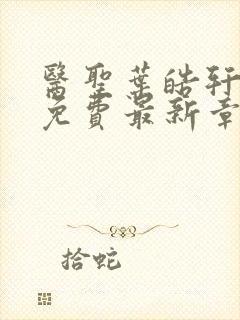 醫聖葉皓軒
免費最新章
拾蛇